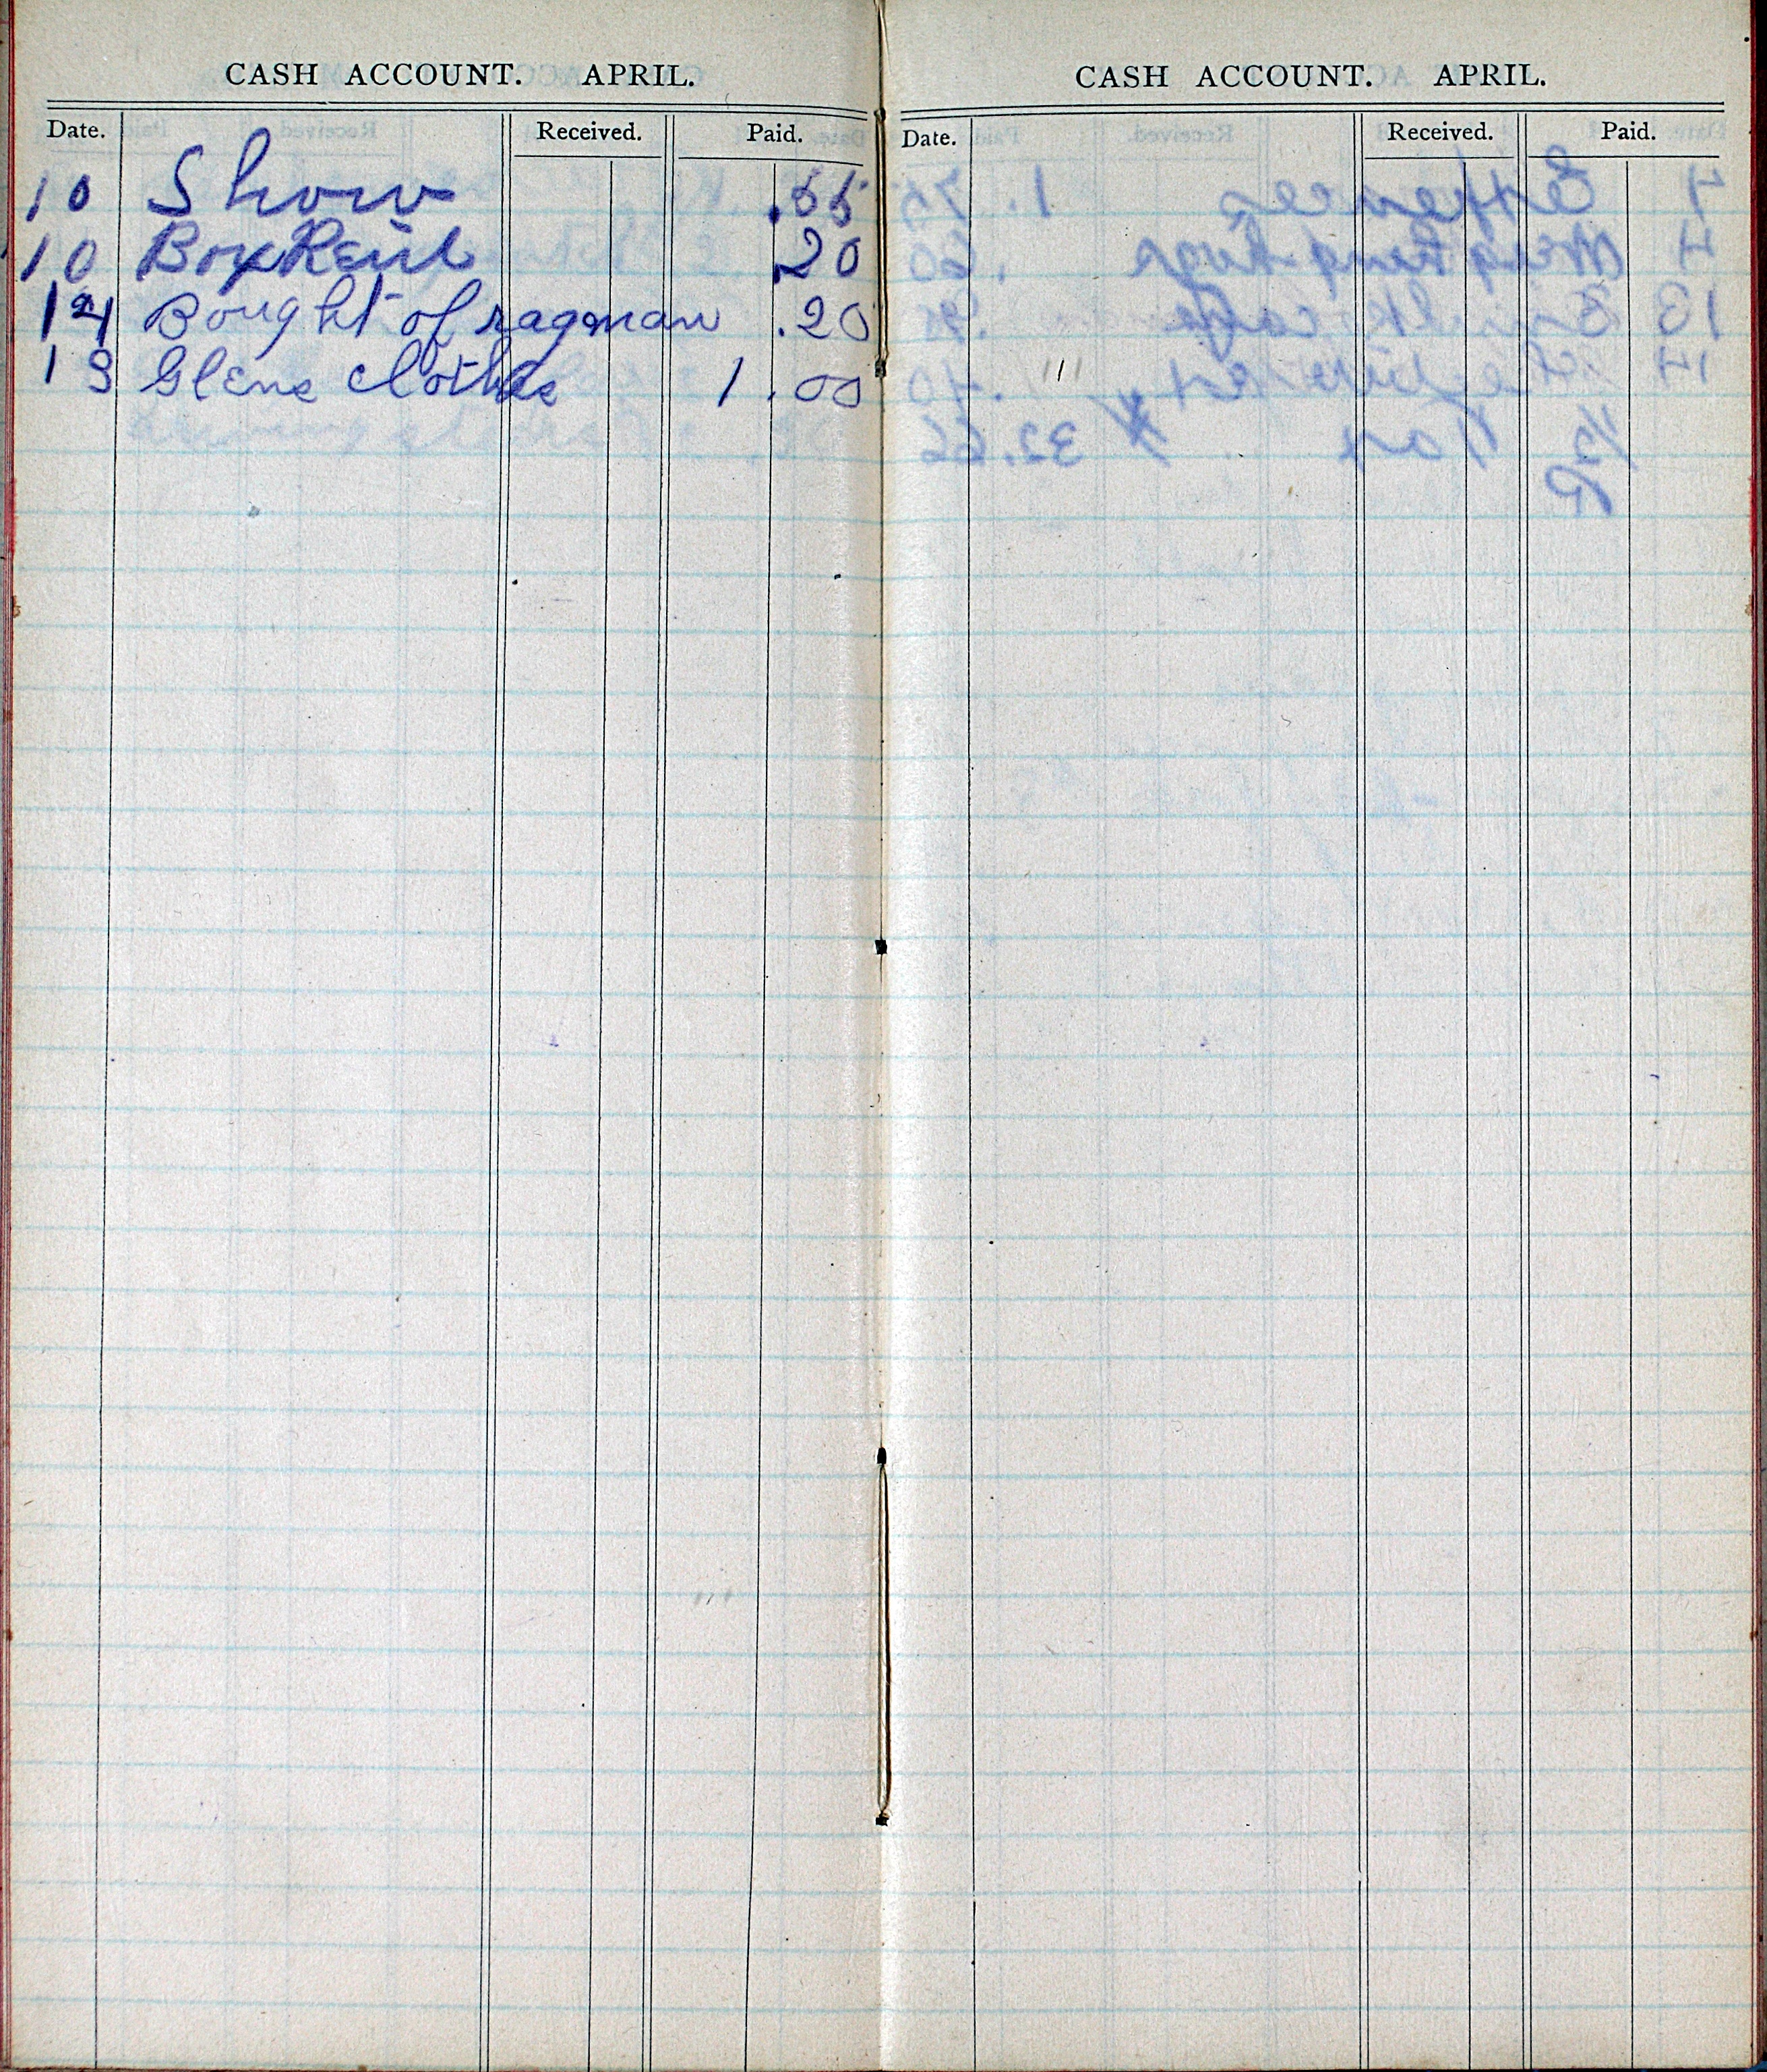 CASH ACCOUNT. APRIL.
Date. Received. Paid.
10 Show .55
10 Box Rent .20
14 Bought of ragman .20
13 Glens clothes 1.00
CASH ACCOUNT. APRIL.
Date. Received. Paid.